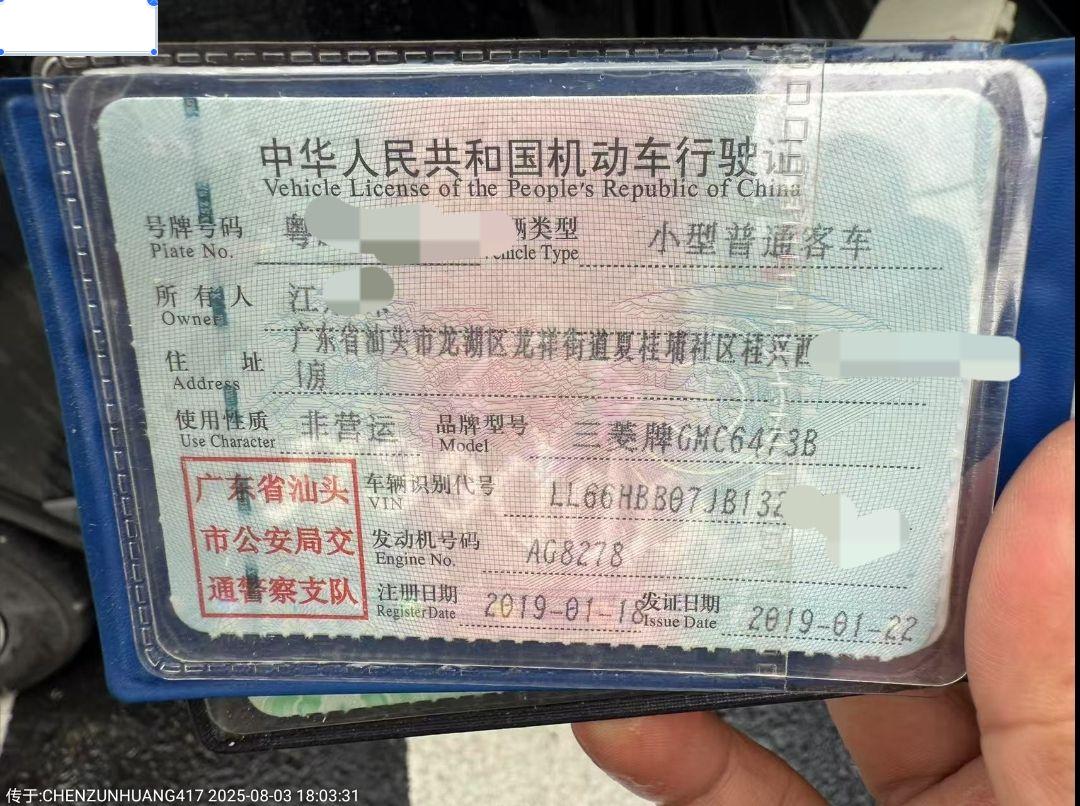 中华人民共和国机动车行驶证
Vehicle License of the People's Republic of China
号牌号码 粤 辆类型 小型普通客车
Plate No. Vehicle Type
所有人 江
Owner
住址 广东省汕头市龙湖区龙祥街道夏桂埔社区桂兴西
Address 房
使用性质 非营运 品牌型号 三菱牌GMC6473B
Use Character Model
广东省汕头 车辆识别代号 LL66HBB07JB132
VIN
市公安局交 发动机号码 AG8278
Engine No.
通警察支队 注册日期 2019-01-18 发证日期 2019-01-22
Register Date Issue Date
传于:CHENZUNHUANG417 2025-08-03 18:03:31